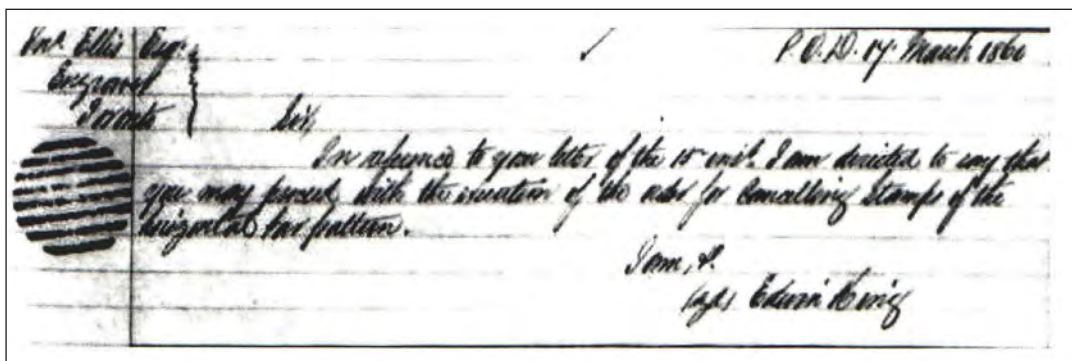 Jnº Ellis Esqr.
Engraver
Toronto
P.O.D. 17 March 1860
Sir,
In reference to your letter of the 15 inst. I am directed to say that
you may proceed with the execution of the order for Cancelling Stamps of the
horizontal bar pattern.
I am, &.
(sgd) Edwin King